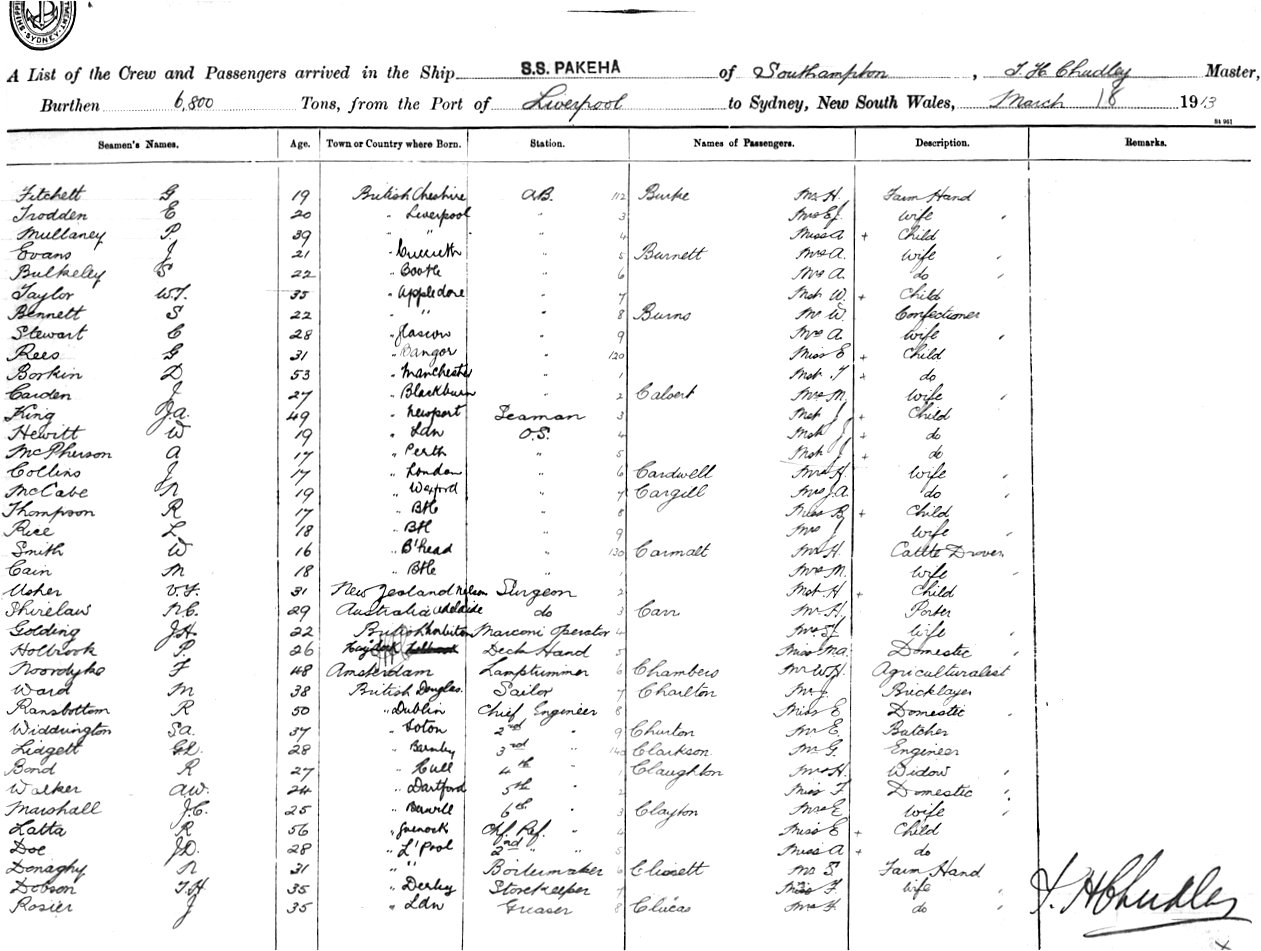 SYDNEY
A List of the Crew and Passengers arrived in the Ship S.S. PAKEHA of Southampton, T. H. Chudley Master,
Burthen 6,800 Tons, from the Port of Liverpool to Sydney, New South Wales, March 18 1913
S4 961
Seamen's Names. Age. Town or Country where Born. Station. Names of Passengers. Description. Remarks.
Fitchett G 19 British Cheshire A.B. 112 Burke Mr H. Farm Hand
Trodden E 20 " Liverpool " 3 Mrs E.J. Wife
Mullaney P. 39 " " " 4 Miss A + Child
Evans J 21 " " 5 Burnett Mrs A. Wife
Bulkeley S 22 " Bootle " 6 Mrs A. do
Taylor W.T. 35 " Appledore " 7 Mstr W. + Child
Bennett S 22 " " " 8 Burns Mr W. Confectioner
Stewart C 28 " Glasgow " 9 Mrs A. Wife
Rees G 31 " Bangor " 120 Miss E + Child
Borkin D 53 " Manchester " 1 Mstr T + do
Carden J 27 " Blackburn " 2 Calvert Mrs M. Wife
King J.A. 49 " Newport Seaman 3 Mstr J + Child
Hewitt W 19 " Ldn O.S. 4 Mstr J + do
McPherson A 17 " Perth " 5 Mstr J + do
Collins J 17 " London " 6 Cardwell Mrs H. Wife
McCabe N 19 " Wexford " 7 Cargill Mrs J.A. do
Thompson R 17 " Btle " 8 Miss B. + Child
Rice L 18 " Btl " 9 Mrs J Wife
Smith W 16 " B'head " 130 Carmalt Mr H. Cattle Drover
Cain M 18 " Btle " 1 Mrs M. Wife
Usher V.F. 31 New Zealand Nelson Surgeon 2 Mstr H + Child
Shirelaw N.C. 29 Australia Adelaide do 3 Carr Mr H. Porter
Golding J.H. 22 British Marconi Operator 4 Mrs H. Wife
Holbrook P. 26 Haydock Deck Hand 5 Miss Ma. Domestic
Noordyke F 48 Amsterdam Lamptrimmer 6 Chambers Mr W.H. Agriculturalist
Ward M 38 British Douglas. Sailor 7 Charlton Mr J. Bricklayer
Ransbottom R 50 " Dublin Chief Engineer 8 Miss E Domestic
Widdrington S.A. 37 " Soton 2nd " 9 Churton Mr E. Butcher
Lidgett G.L. 28 " Burnley 3rd " 140 Clarkson Mr G. Engineer
Bond R 27 " Hull 4th " 1 Claughton Mrs H. Widow
Walker A.W. 24 " Dartford 5th " 2 Miss F Domestic
Marshall J.C. 25 " 6th " 3 Clayton Mrs E Wife
Latta R 56 " Greenock Chf. Ref. " 4 Miss E + Child
Doe J.D. 28 " L'Pool 2nd " " 5 Miss A + do
Donaghy N 31 " " Boilermaker 6 Mr S. Farm Hand
Dobson T.H. 35 " Derby Storekeeper 7 F. Wife
Rosier J 35 " Ldn Greaser 8 Clucas Mrs do
T. H Chudley